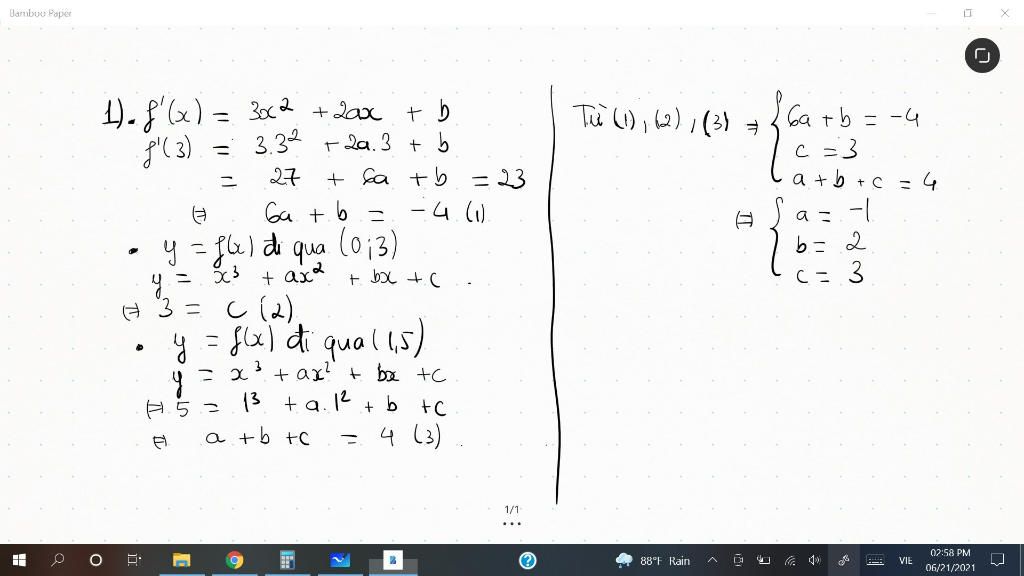 Bamboo Paper
1). f'(x) = 3x² + 2ax + b
f'(3) = 3.3² + 2a.3 + b
= 27 + 6a + b = 23
⇔ 6a + b = -4 (1)
• y = f(x) đi qua (0;3)
y = x³ + ax² + bx + c .
⇔ 3 = c (2)
• y = f(x) đi qua (1,5)
y = x³ + ax² + bx + c
⇔ 5 = 1³ + a.1² + b + c
⇔ a + b + c = 4 (3) .
Từ (1), (2), (3) ⇒ { 6a + b = -4
c = 3
a + b + c = 4
⇔ { a = -1
b = 2
c = 3
1/1
88°F Rain
VIE
02:58 PM
06/21/2021